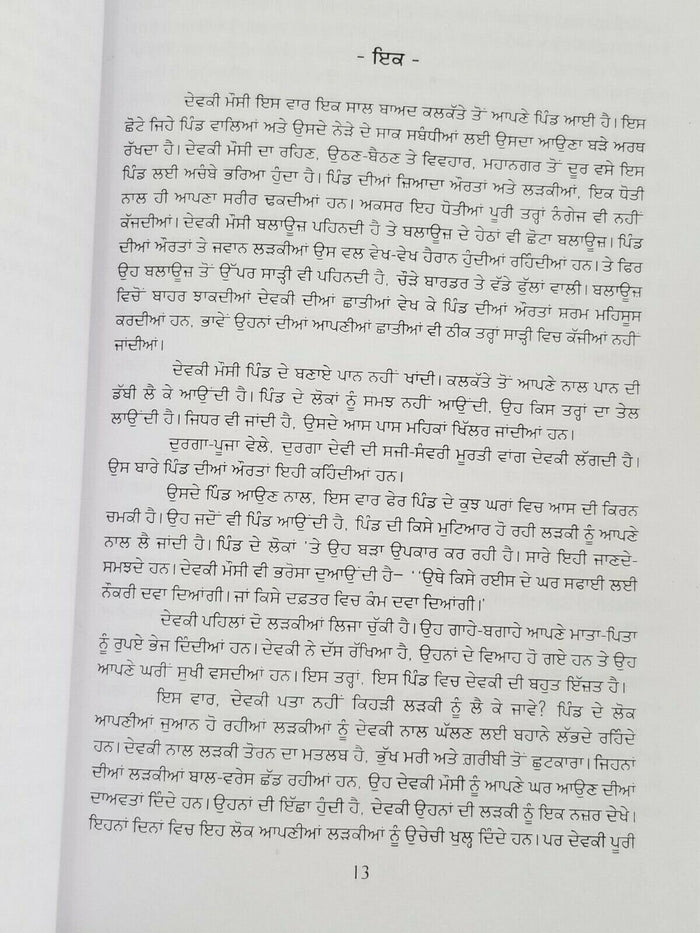 - ਇਕ -
ਦੇਵਕੀ ਮੌਸੀ ਇਸ ਵਾਰ ਇਕ ਸਾਲ ਬਾਅਦ ਕਲਕੱਤੇ ਤੋਂ ਆਪਣੇ ਪਿੰਡ ਆਈ ਹੈ। ਇਸ
ਛੋਟੇ ਜਿਹੇ ਪਿੰਡ ਵਾਲਿਆਂ ਅਤੇ ਉਸਦੇ ਨੇੜੇ ਦੇ ਸਾਕ ਸਬੰਧੀਆਂ ਲਈ ਉਸਦਾ ਆਉਣਾ ਬੜੇ ਅਰਥ
ਰੱਖਦਾ ਹੈ। ਦੇਵਕੀ ਮੌਸੀ ਦਾ ਰਹਿਣ, ਉਠਣ-ਬੈਠਣ ਤੇ ਵਿਵਹਾਰ, ਮਹਾਨਗਰ ਤੋਂ ਦੂਰ ਵਸੇ ਇਸ
ਪਿੰਡ ਲਈ ਅਚੰਬੇ ਭਰਿਆ ਹੁੰਦਾ ਹੈ। ਪਿੰਡ ਦੀਆਂ ਜ਼ਿਆਦਾ ਔਰਤਾਂ ਅਤੇ ਲੜਕੀਆਂ, ਇਕ ਧੋਤੀ
ਨਾਲ ਹੀ ਆਪਣਾ ਸਰੀਰ ਢਕਦੀਆਂ ਹਨ। ਅਕਸਰ ਇਹ ਧੋਤੀਆਂ ਪੂਰੀ ਤਰ੍ਹਾਂ ਨੰਗੇਜ ਵੀ ਨਹੀਂ
ਕੱਜਦੀਆਂ। ਦੇਵਕੀ ਮੌਸੀ ਬਲਾਊਜ਼ ਪਹਿਨਦੀ ਹੈ ਤੇ ਬਲਾਊਜ਼ ਦੇ ਹੇਠਾਂ ਵੀ ਛੋਟਾ ਬਲਾਊਜ਼। ਪਿੰਡ
ਦੀਆਂ ਔਰਤਾਂ ਤੇ ਜਵਾਨ ਲੜਕੀਆਂ ਉਸ ਵਲ ਵੇਖ-ਵੇਖ ਹੈਰਾਨ ਹੁੰਦੀਆਂ ਰਹਿੰਦੀਆਂ ਹਨ। ਤੇ ਫਿਰ
ਉਹ ਬਲਾਊਜ਼ ਤੋਂ ਉੱਪਰ ਸਾੜ੍ਹੀ ਵੀ ਪਹਿਨਦੀ ਹੈ, ਚੌੜੇ ਬਾਰਡਰ ਤੇ ਵੱਡੇ ਫੁੱਲਾਂ ਵਾਲੀ। ਬਲਾਊਜ਼
ਵਿਚੋਂ ਬਾਹਰ ਝਾਕਦੀਆਂ ਦੇਵਕੀ ਦੀਆਂ ਛਾਤੀਆਂ ਵੇਖ ਕੇ ਪਿੰਡ ਦੀਆਂ ਔਰਤਾਂ ਸ਼ਰਮ ਮਹਿਸੂਸ
ਕਰਦੀਆਂ ਹਨ, ਭਾਵੇਂ ਉਹਨਾਂ ਦੀਆਂ ਆਪਣੀਆਂ ਛਾਤੀਆਂ ਵੀ ਠੀਕ ਤਰ੍ਹਾਂ ਸਾੜ੍ਹੀ ਵਿਚ ਕੱਜੀਆਂ ਨਹੀਂ
ਜਾਂਦੀਆਂ।
ਦੇਵਕੀ ਮੌਸੀ ਪਿੰਡ ਦੇ ਬਣਾਏ ਪਾਨ ਨਹੀਂ ਖਾਂਦੀ। ਕਲਕੱਤੇ ਤੋਂ ਆਪਣੇ ਨਾਲ ਪਾਨ ਦੀ
ਡੱਬੀ ਲੈ ਕੇ ਆਉਂਦੀ ਹੈ। ਪਿੰਡ ਦੇ ਲੋਕਾਂ ਨੂੰ ਸਮਝ ਨਹੀਂ ਆਉਂਦੀ, ਉਹ ਕਿਸ ਤਰ੍ਹਾਂ ਦਾ ਤੇਲ
ਲਾਉਂਦੀ ਹੈ। ਜਿਧਰ ਵੀ ਜਾਂਦੀ ਹੈ, ਉਸਦੇ ਆਸ ਪਾਸ ਮਹਿਕਾਂ ਖਿੱਲਰ ਜਾਂਦੀਆਂ ਹਨ।
ਦੁਰਗਾ-ਪੂਜਾ ਵੇਲੇ, ਦੁਰਗਾ ਦੇਵੀ ਦੀ ਸਜੀ-ਸੰਵਰੀ ਮੂਰਤੀ ਵਾਂਗ ਦੇਵਕੀ ਲੱਗਦੀ ਹੈ।
ਉਸ ਬਾਰੇ ਪਿੰਡ ਦੀਆਂ ਔਰਤਾਂ ਇਹੀ ਕਹਿੰਦੀਆਂ ਹਨ।
ਉਸਦੇ ਪਿੰਡ ਆਉਣ ਨਾਲ, ਇਸ ਵਾਰ ਫੇਰ ਪਿੰਡ ਦੇ ਕੁਝ ਘਰਾਂ ਵਿਚ ਆਸ ਦੀ ਕਿਰਨ
ਚਮਕੀ ਹੈ। ਉਹ ਜਦੋਂ ਵੀ ਪਿੰਡ ਆਉਂਦੀ ਹੈ, ਪਿੰਡ ਦੀ ਕਿਸੇ ਮੁਟਿਆਰ ਹੋ ਰਹੀ ਲੜਕੀ ਨੂੰ ਆਪਣੇ
ਨਾਲ ਲੈ ਜਾਂਦੀ ਹੈ। ਪਿੰਡ ਦੇ ਲੋਕਾਂ 'ਤੇ ਉਹ ਬੜਾ ਉਪਕਾਰ ਕਰ ਰਹੀ ਹੈ। ਸਾਰੇ ਇਹੀ ਜਾਣਦੇ-
ਸਮਝਦੇ ਹਨ। ਦੇਵਕੀ ਮੌਸੀ ਵੀ ਭਰੋਸਾ ਦੁਆਉਂਦੀ ਹੈ– ''ਉਥੇ ਕਿਸੇ ਰਈਸ ਦੇ ਘਰ ਸਫਾਈ ਲਈ
ਨੌਕਰੀ ਦਵਾ ਦਿਆਂਗੀ। ਜਾਂ ਕਿਸੇ ਦਫ਼ਤਰ ਵਿਚ ਕੰਮ ਦਵਾ ਦਿਆਂਗੀ।'
ਦੇਵਕੀ ਪਹਿਲਾਂ ਦੋ ਲੜਕੀਆਂ ਲਿਜਾ ਚੁੱਕੀ ਹੈ। ਉਹ ਗਾਹੇ-ਬਗਾਹੇ ਆਪਣੇ ਮਾਤਾ-ਪਿਤਾ
ਨੂੰ ਰੁਪਏ ਭੇਜ ਦਿੰਦੀਆਂ ਹਨ। ਦੇਵਕੀ ਨੇ ਦੱਸ ਰੱਖਿਆ ਹੈ, ਉਹਨਾਂ ਦੇ ਵਿਆਹ ਹੋ ਗਏ ਹਨ ਤੇ ਉਹ
ਆਪਣੇ ਘਰੀਂ ਸੁਖੀ ਵਸਦੀਆਂ ਹਨ। ਇਸ ਤਰ੍ਹਾਂ, ਇਸ ਪਿੰਡ ਵਿਚ ਦੇਵਕੀ ਦੀ ਬਹੁਤ ਇੱਜ਼ਤ ਹੈ।
ਇਸ ਵਾਰ, ਦੇਵਕੀ ਪਤਾ ਨਹੀਂ ਕਿਹੜੀ ਲੜਕੀ ਨੂੰ ਲੈ ਕੇ ਜਾਵੇ? ਪਿੰਡ ਦੇ ਲੋਕ
ਆਪਣੀਆਂ ਜੁਆਨ ਹੋ ਰਹੀਆਂ ਲੜਕੀਆਂ ਨੂੰ ਦੇਵਕੀ ਨਾਲ ਘੱਲਣ ਲਈ ਬਹਾਨੇ ਲੱਭਦੇ ਰਹਿੰਦੇ
ਹਨ। ਦੇਵਕੀ ਨਾਲ ਲੜਕੀ ਤੋਰਨ ਦਾ ਮਤਲਬ ਹੈ, ਭੁੱਖ ਮਰੀ ਅਤੇ ਗਰੀਬੀ ਤੋਂ ਛੁਟਕਾਰਾ। ਜਿਹਨਾਂ
ਦੀਆਂ ਲੜਕੀਆਂ ਬਾਲ-ਵਰੇਸ ਛੱਡ ਰਹੀਆਂ ਹਨ, ਉਹ ਦੇਵਕੀ ਮੌਸੀ ਨੂੰ ਆਪਣੇ ਘਰ ਆਉਣ ਦੀਆਂ
ਦਾਅਵਤਾਂ ਦਿੰਦੇ ਹਨ। ਉਹਨਾਂ ਦੀ ਇੱਛਾ ਹੁੰਦੀ ਹੈ, ਦੇਵਕੀ ਉਹਨਾਂ ਦੀ ਲੜਕੀ ਨੂੰ ਇਕ ਨਜ਼ਰ ਦੇਖੇ।
ਇਹਨਾਂ ਦਿਨਾਂ ਵਿਚ ਇਹ ਲੋਕ ਆਪਣੀਆਂ ਲੜਕੀਆਂ ਨੂੰ ਉਚੇਚੀ ਖੁਲ੍ਹ ਦਿੰਦੇ ਹਨ। ਪਰ ਦੇਵਕੀ ਪੂਰੀ
13